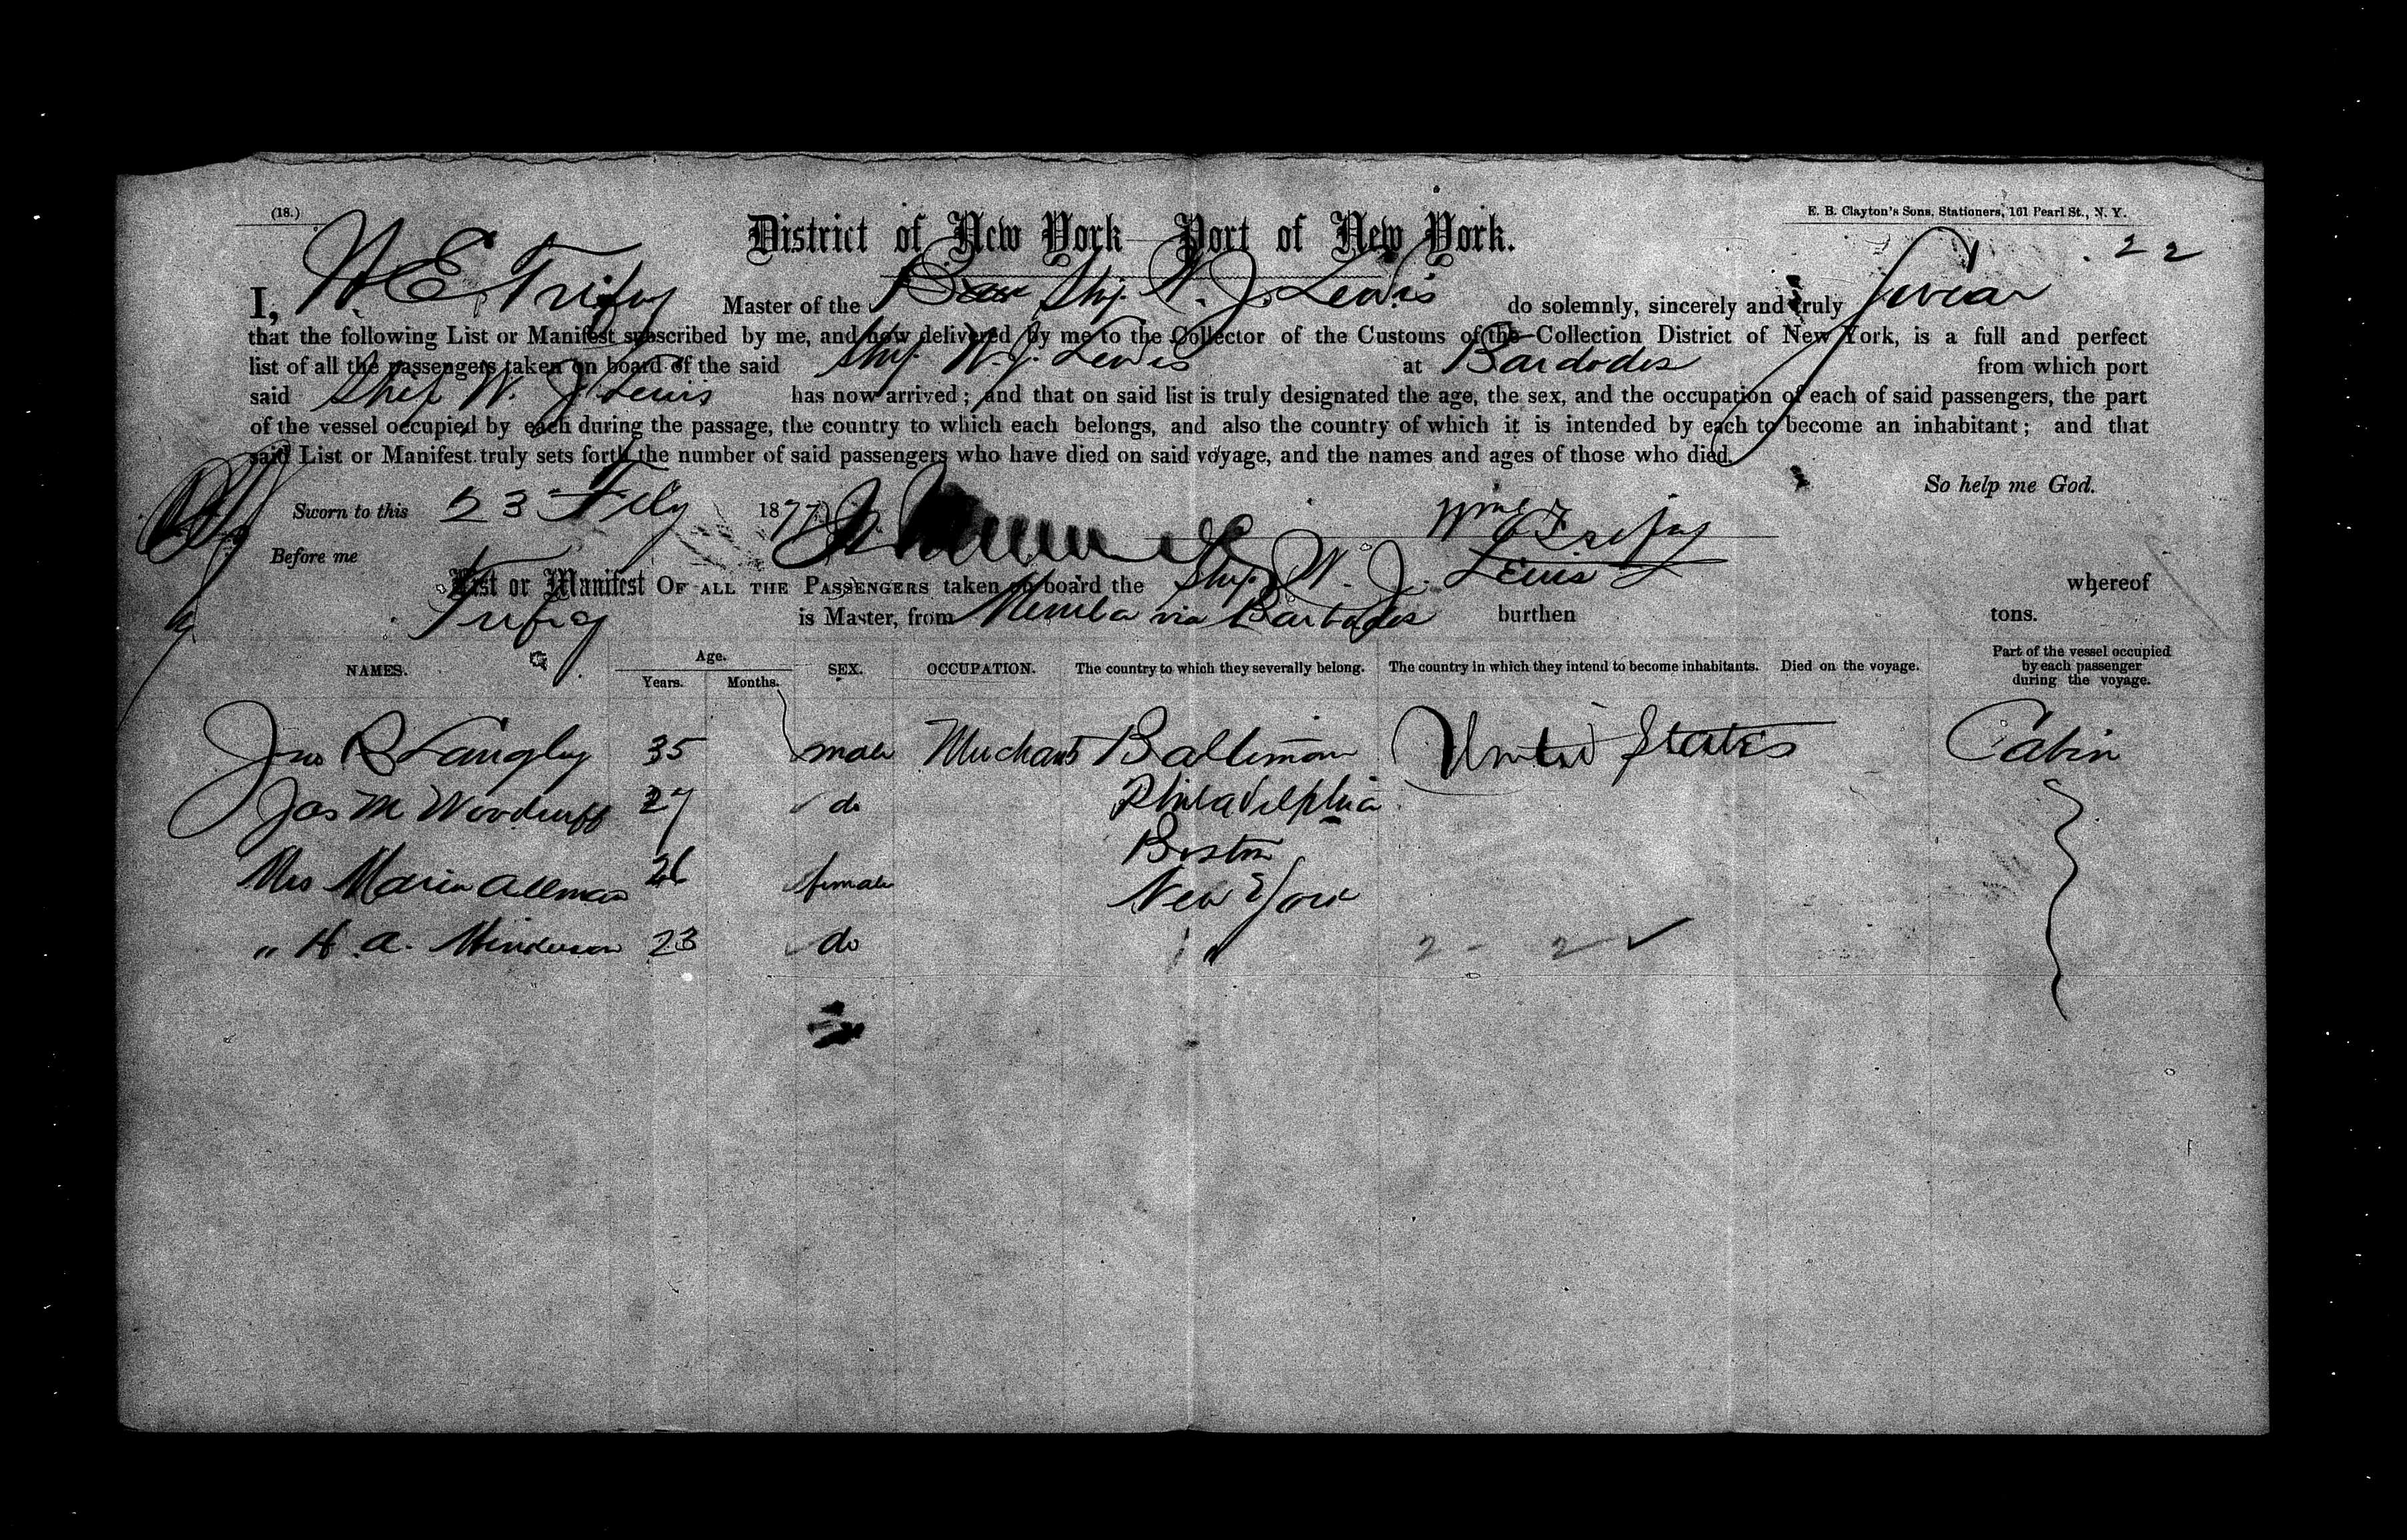 (18.)
E. B. Clayton's Sons, Stationers, 161 Pearl St., N. Y.
District of New York—Port of New York.
22
I, W E Trefry Master of the Ship W. J. Lewis do solemnly, sincerely and truly swear
that the following List or Manifest subscribed by me, and now delivered by me to the Collector of the Customs of the Collection District of New York, is a full and perfect
list of all the passengers taken on board of the said Ship W. J. Lewis at Bardodos from which port
said Ship W. J. Lewis has now arrived; and that on said list is truly designated the age, the sex, and the occupation of each of said passengers, the part
of the vessel occupied by each during the passage, the country to which each belongs, and also the country of which it is intended by each to become an inhabitant; and that
said List or Manifest truly sets forth the number of said passengers who have died on said voyage, and the names and ages of those who died.
So help me God.
Sworn to this 23 Feby 1877
Before me
List or Manifest OF ALL THE PASSENGERS taken on board the Ship W. J. Lewis whereof
Trefry is Master, from via Barbados burthen tons.
NAMES. Age. Years. Months. SEX. OCCUPATION. The country to which they severally belong. The country in which they intend to become inhabitants. Died on the voyage. Part of the vessel occupied by each passenger during the voyage.
Jno R Langley 35 male Merchant Baltimore United States Cabin
Jas M Woodruff 27 do Philadelphia
Boston
Mrs Maria Allman 26 female New York
" H. A. Henderson 23 do "
2 - 2 ✓